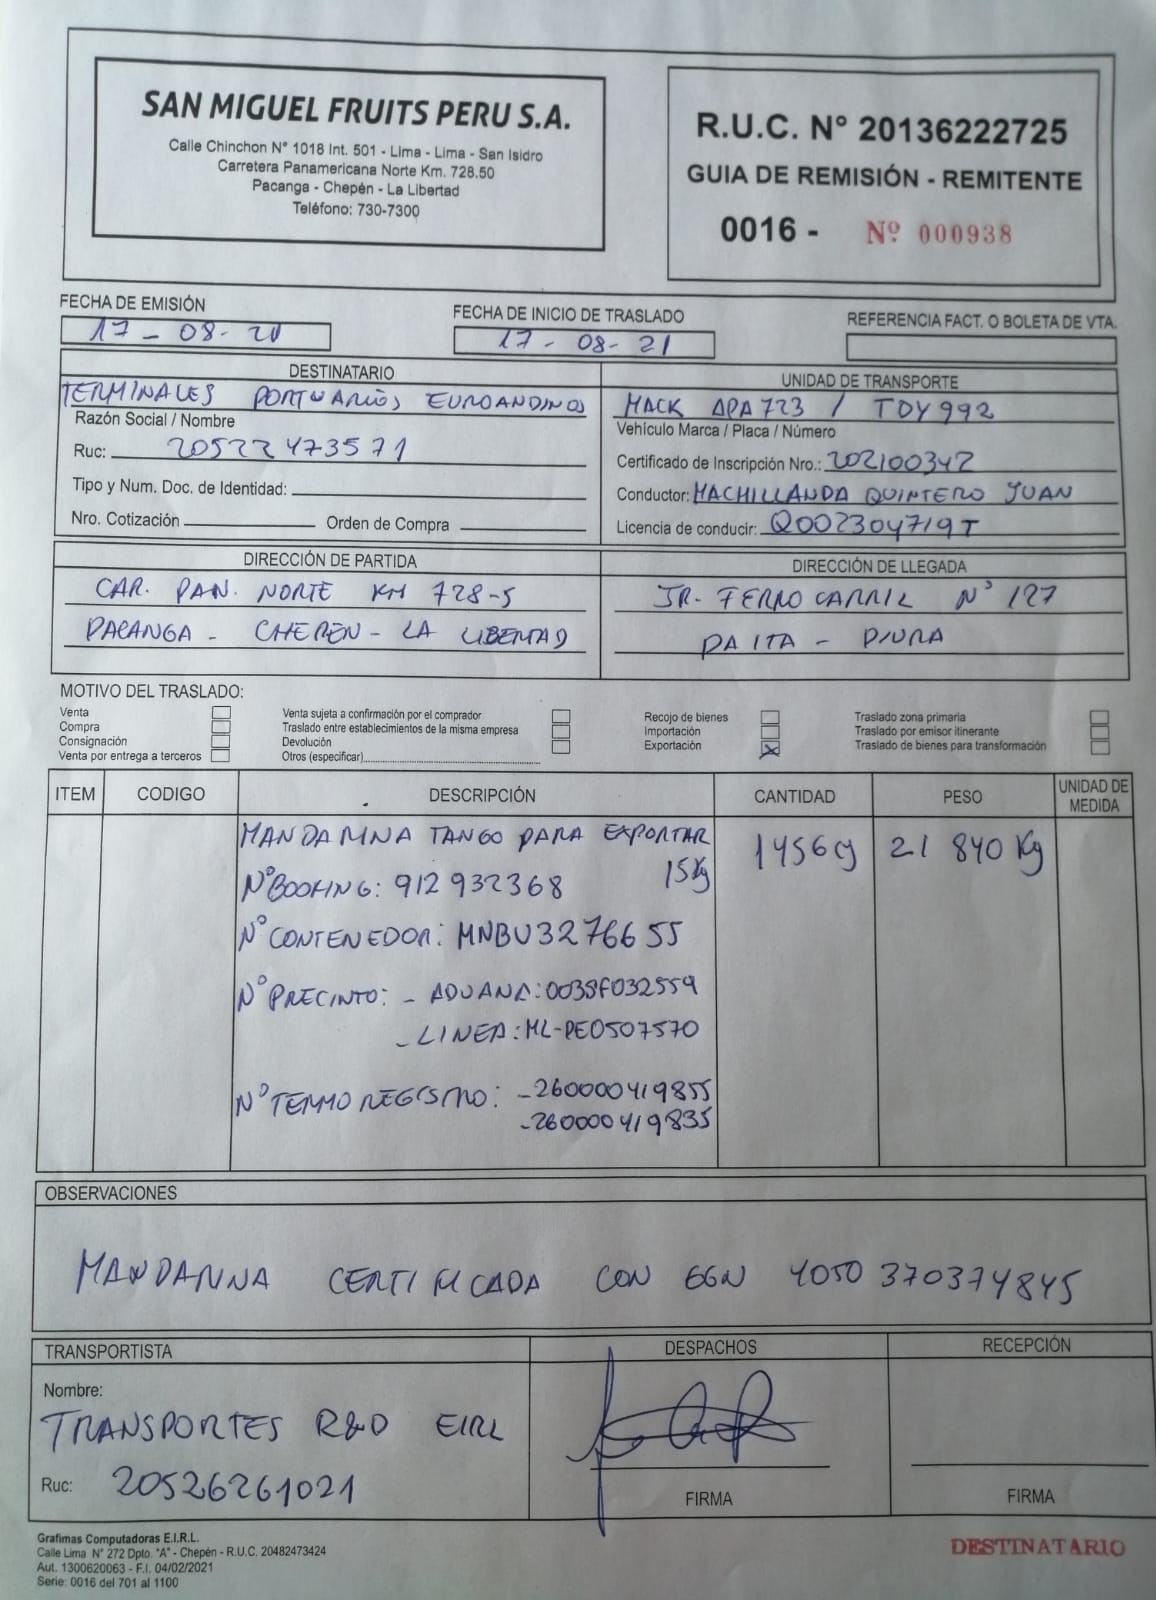 SAN MIGUEL FRUITS PERU S.A.
Calle Chinchon N° 1018 Int. 501 - Lima - Lima - San Isidro
Carretera Panamericana Norte Km. 728.50
Pacanga - Chepén - La Libertad
Teléfono: 730-7300
R.U.C. N° 20136222725
GUIA DE REMISIÓN - REMITENTE
0016 - Nº 000938
FECHA DE EMISIÓN
17 - 08 - 21
FECHA DE INICIO DE TRASLADO
17 - 08 - 21
REFERENCIA FACT. O BOLETA DE VTA.
DESTINATARIO
TERMINALES PORTUARIOS EUROANDINOS
Razón Social / Nombre
Ruc: 20522473571
Tipo y Num. Doc. de Identidad:
Nro. Cotización Orden de Compra
UNIDAD DE TRANSPORTE
MACK APA723 / TDY992
Vehículo Marca / Placa / Número
Certificado de Inscripción Nro.: 202100342
Conductor: MACHILLANDA QUINTERO JUAN
Licencia de conducir: Q002304719T
DIRECCIÓN DE PARTIDA
CAR. PAN. NORTE KM 728-5
PACANGA - CHEPEN - LA LIBERTAD
DIRECCIÓN DE LLEGADA
JR. FERROCARRIL N° 127
PAITA - PIURA
MOTIVO DEL TRASLADO:
Venta
Compra
Consignación
Venta por entrega a terceros
Venta sujeta a confirmación por el comprador
Traslado entre establecimientos de la misma empresa
Devolución
Otros (especificar)
Recojo de bienes
Importación
Exportación X
Traslado zona primaria
Traslado por emisor itinerante
Traslado de bienes para transformación
ITEM CODIGO DESCRIPCIÓN CANTIDAD PESO UNIDAD DE MEDIDA
MANDARINA TANGO PARA EXPORTAR 1456 cj 21 840 Kg
15Kg
N° BOOKING: 912932368
N° CONTENEDOR: MNBU3276655
N° PRECINTO: - ADUANA: 003SF032559
- LINEA: ML-PE0507570
N° TERMO REGISTRO: -260000419855
-260000419835
OBSERVACIONES
MANDARINA CERTIFICADA CON GGN 4050370374845
TRANSPORTISTA
Nombre:
TRANSPORTES R&D EIRL
Ruc: 20526261021
DESPACHOS
FIRMA
RECEPCIÓN
FIRMA
Grafimas Computadoras E.I.R.L.
Calle Lima N° 272 Dpto. "A" - Chepén - R.U.C. 20482473424
Aut. 1300620063 - F.I. 04/02/2021
Serie: 0016 del 701 al 1100
DESTINATARIO